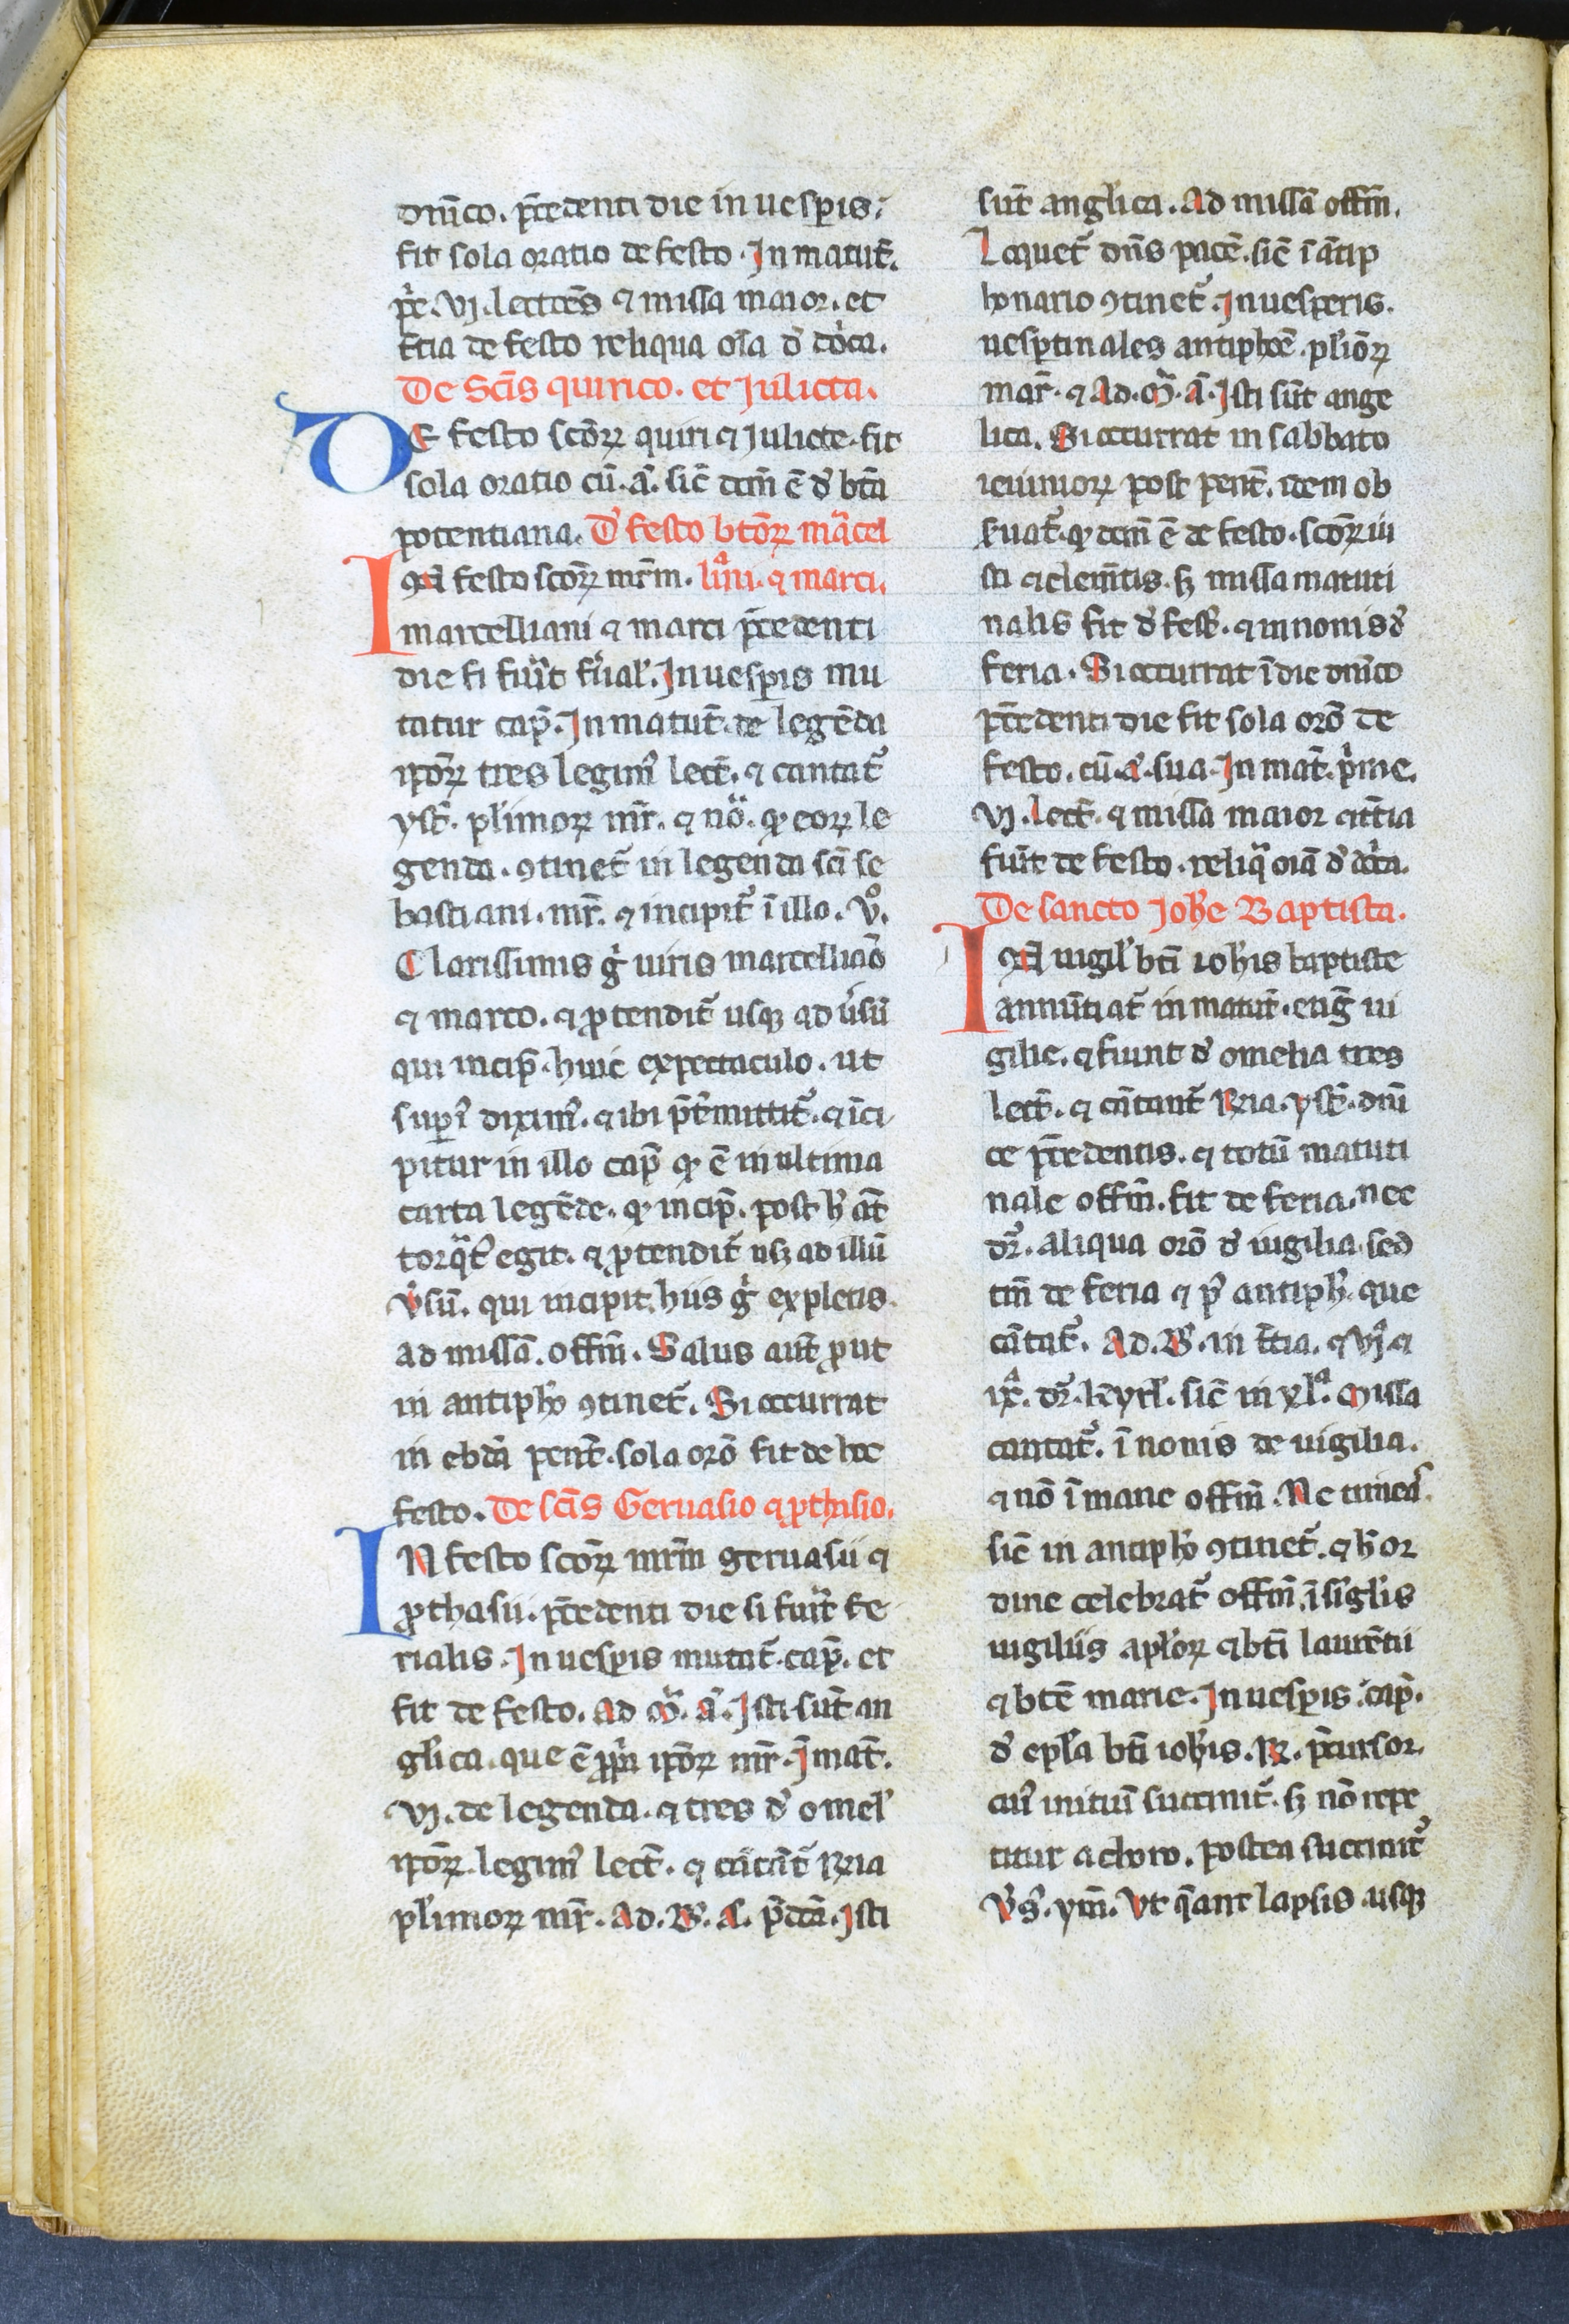 dnīco. p̄cedenti die in uesꝑis.
fit sola oratio de festo. In matut̄.
p̄e. vj. lectōēs ⁊ missa maior. et
t̄cia de festo reliqua oīa d̓ dn̄ica.
De Sc̄is quirico. et Julicta.
DE festo scōꝝ quiri ⁊ Julicte. fit
sola oratio cū. a͞. sic̄ dcm̄ ē d̓ btā
potentiana. D̓ festo btōꝝ m̄cel
IN festo scōꝝ mr̄m. līni. ⁊ marci.
marcelliani ⁊ marci p̄cedenti
die si fūit f̄ial'. In uesꝑis mu
tatur cap̄. In matut̄. de legēda
ip̄oꝝ tres legim᷒ lect̄. ⁊ cantat᷑
yst̄. pl'imoꝝ mr̄. ⁊ nō. ꝙ eoꝝ le
genda. ꝯtinet᷑ in legenda scī se
bastiani. mr̄. ⁊ incipit᷑ ī illo. v̊.
Clarissimis g̊ uiris marcelliāo
⁊ marco. ⁊ ꝓtendit᷑ usqꝫ ad ūsū
qui incip̄. huic expectaculo. ut
suꝑi᷒ dixim᷒. ⁊ ibi p̄t̄mittit᷑. ⁊ īci
pitur in illo cap̄ ꝙ ē in ultima
carta legēde. ꝙ incip̄. post h̄ āt
torq̄t᷒ egit. ⁊ ꝓtendit᷑ usꝫ ad illū
v̄sū. qui incipit. hiis g̊ expletis.
ad missā. offm̄. Salus aūt ꝓut
in antiph̄o ꝯtinet᷑. Si occurrat
in ebdā pent̄. sola orō fit de hoc
festo. De sc̄is Geruasio ⁊ ꝓthasio.
IN festo scōꝝ mr̄m geruasii ⁊
ꝓthasii. p̄cedenti die si fūit fe
rialis. In uesꝑis mutat᷑. cap̄. et
fit de festo. Ad m̄. a͞. Isti sūt an
gl'ica. que ē ꝓp̄a ip̄oꝝ mr̄. J̄ mat̄.
vj. de legenda. ⁊ tres d̓ omel'
ip̄oꝝ legim᷒ lect̄. ⁊ cātāt᷑ ꝶia
pl'imoꝝ mr̄. Ad. B̄. a͞. p̄dcā. Isti
sūt angl'ica. Ad missā offm̄.
Loquet᷑ dn̄s pacē. sic̄ ī ātip
honario ꝯtinet᷑. In uesperis.
uesꝑtinales antiphōē. pl'iōꝝ
mar̄. ⁊ Ad. m̄. a͞. Isti sūt ange
lica. Si occurrat in sabbato
ieiunioꝝ post pent̄. idem ob
s̄uat᷑. ꝙ dcm̄ ē de festo. scōꝝ iu
sti ⁊ clem̄tis. sꝫ missa matuti
nalis fit d̓ fest̄. ⁊ in nonis d̓
feria. Si occurrat ī die dn̄ico
p̄cedenti die fit sola orō de
festo. cū. a͞. sua. In mat̄. p̄me.
vj. lect̄. ⁊ missa maior ⁊ t̄tia
fūit de festo. reliq̄ oīa d̓ dn̄ica.
De sancto Joh̄e Baptista.
IN uigil' btī ioh̄is baptiste
annūtiat᷑ in matut̄. euḡ ui
gilie. ⁊ fiunt d̓ omelia tres
lect̄. ⁊ cātant᷑ ꝶia. yst̄. dn̄i
ce p̄cedentis. ⁊ totū matuti
nale offm̄. fit de feria. nec
dr̄. aliqua orō d̓ uigilia. sed
tm̄ de feria ⁊ p᷒ antiph̄. que
cātat᷑. Ad. B̄. in t̄cia. ⁊ vj̊. ⁊
ixᵃ. dr̄. kyrl̄. sic̄ in xlᵃ. missa
cantat᷑. ī nonis de uigilia.
⁊ nō ī mane offm̄. Ne timeas.
sic̄ in antiph̄o ꝯtinet᷑. ⁊ h̄ or
dine celebrat᷑ offm̄. ī sīgl'is
uigiliis apl'oꝝ ⁊ btī laurētii
⁊ btē marie. In uesꝑis. cap̄.
d̓ epl'a btī ioh̄is. ꝶ. p̄cursor.
cui᷒ initiū succinit᷑. sꝫ nō repe
titur a choro. postea succinit᷑
v̄s̄. ym̄. Vt q̄ant lapsis. usqꝫ